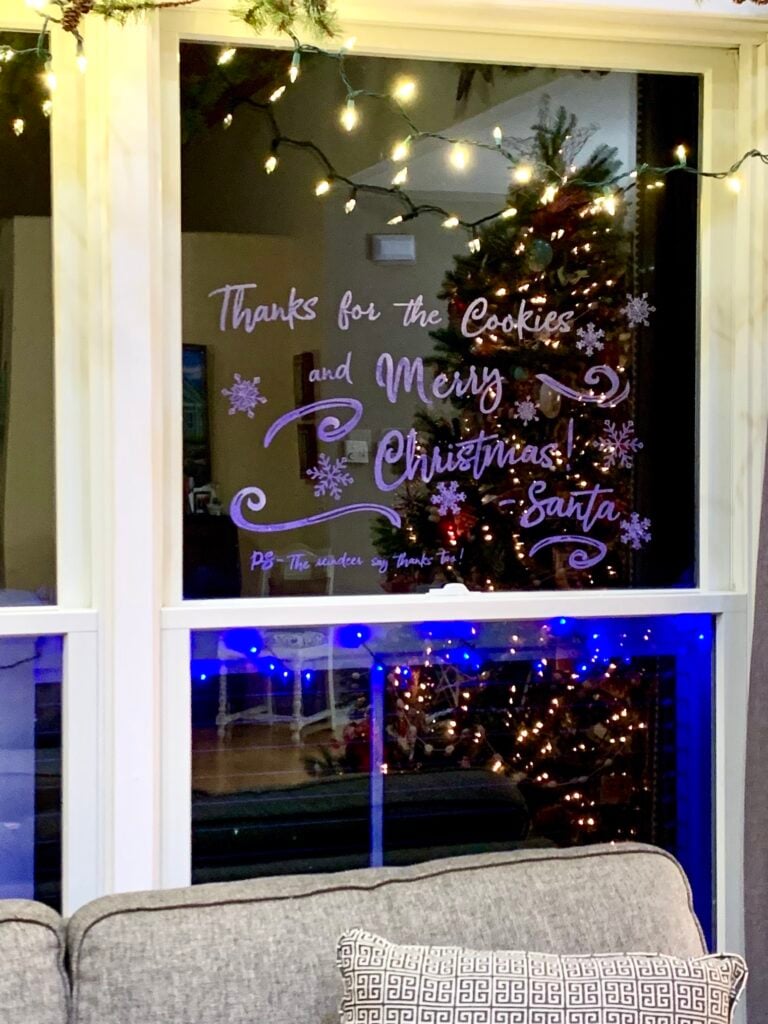 Thanks for the Cookies
and Merry
Christmas!
- Santa
PS - The reindeer say thanks too!